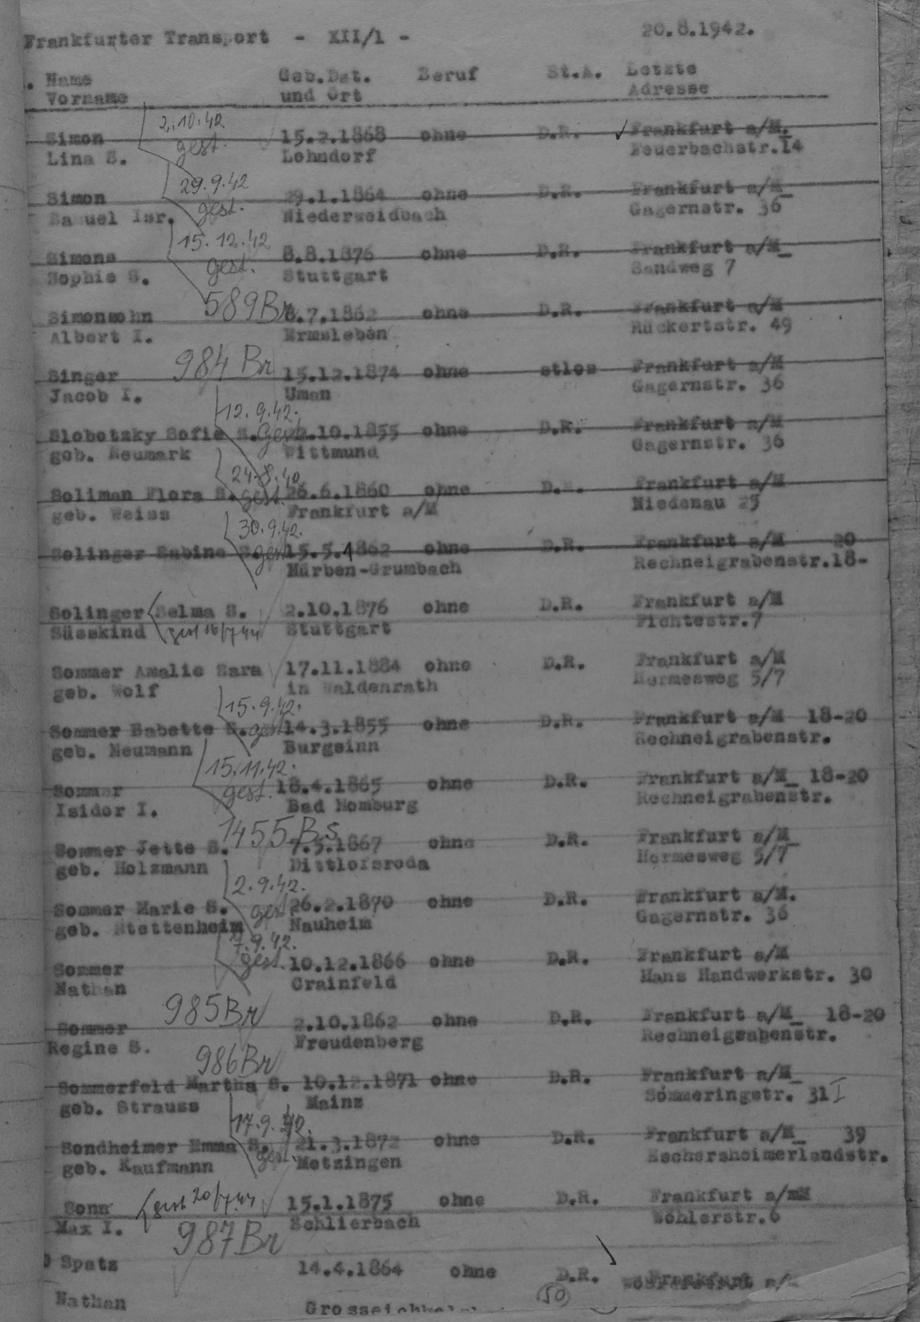 Frankfurter Transport - XII/1 - 20.8.1942.
Name Geb.Dat. Beruf St.A. Letzte
Vorname und Ort Adresse
2.10.42
Simon 15.2.1868 ohne D.R. Frankfurt a/M.
gest.
Lina S. Lohndorf Feuerbachstr.14
29.9.42
Simon 29.1.1864 ohne D.R. Frankfurt a/M_
gest.
Samuel Isr. Niederweidbach Gagernstr. 36
15.12.42
Simons 8.8.1876 ohne D.R. Frankfurt a/M_
gest.
Sophie S. Stuttgart Sandweg 7
589Br
Simonsohn 8.7.1862 ohne D.R. Frankfurt a/M
Albert I. Ermsleben Rückertstr. 49
984 Br
Singer 15.12.1874 ohne stlos Frankfurt a/M
Jacob I. Uman Gagernstr. 36
12.9.42.
Slobotzky Sofie S. gest. .10.1855 ohne D.R. Frankfurt a/M
geb. Neumark Wittmund Gagernstr. 36
24.8.42
Soliman Flora S. gest. 26.6.1860 ohne D.R. Frankfurt a/M
geb. Weiss Frankfurt a/M Niedenau 25
30.9.42.
Solinger Sabine S. gest. 15.5.1862 ohne D.R. Frankfurt a/M 20
Mürben-Grumbach Rechneigrabenstr.18-
Solinger Selma S. 2.10.1876 ohne D.R. Frankfurt a/M
Süsskind gest 16/7 44 Stuttgart Fichtestr.7
Sommer Amalie Sara 17.11.1884 ohne D.R. Frankfurt a/M
geb. Wolf in Waldenrath Hermesweg 5/7
15.9.42.
Sommer Babette S. gest. 14.3.1855 ohne D.R. Frankfurt a/M 18-20
geb. Neumann Burgsinn Rechneigrabenstr.
15.11.42.
Sommer gest. 18.4.1865 ohne D.R. Frankfurt a/M_ 18-20
Isidor I. Bad Homburg Rechneigrabenstr.
1455 Bs
Sommer Jette S. 7.5.1867 ohne D.R. Frankfurt a/M_
geb. Holzmann Dittlofsroda Hermesweg 5/7
2.9.42.
Sommer Marie S. gest 26.2.1870 ohne D.R. Frankfurt a/M.
geb. Stettenheim Nauheim Gagernstr. 36
7.9.42.
Sommer gest. 10.12.1866 ohne D.R. Frankfurt a/M
Nathan Crainfeld Hans Handwerkstr. 30
985Br
Sommer 2.10.1862 ohne D.R. Frankfurt a/M_ 18-20
Regine S. Freudenberg Rechneigrabenstr.
986Br
Sommerfeld Martha S. 10.12.1871 ohne D.R. Frankfurt a/M_
geb. Strauss Mainz Sömmeringstr. 31 I
17.9.42.
Sondheimer Emma S. 21.3.1872 ohne D.R. Frankfurt a/M_ 39
geb. Kaufmann gest. Metzingen Eschersheimerlandstr.
Sonn gest 20/7.44 15.1.1875 ohne D.R. Frankfurt a/mM
Max I. Schlierbach Wöhlerstr.6
987Br
Spatz 14.4.1864 ohne D.R. Frankfurt a/
Nathan (50)